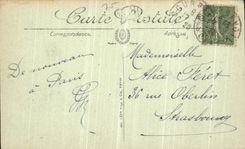 Carte Postale
Correspondance
Adresse
De nouveau
à Paris
Mademoiselle
Alice Féret
36 rue Oberlin
Strasbourg